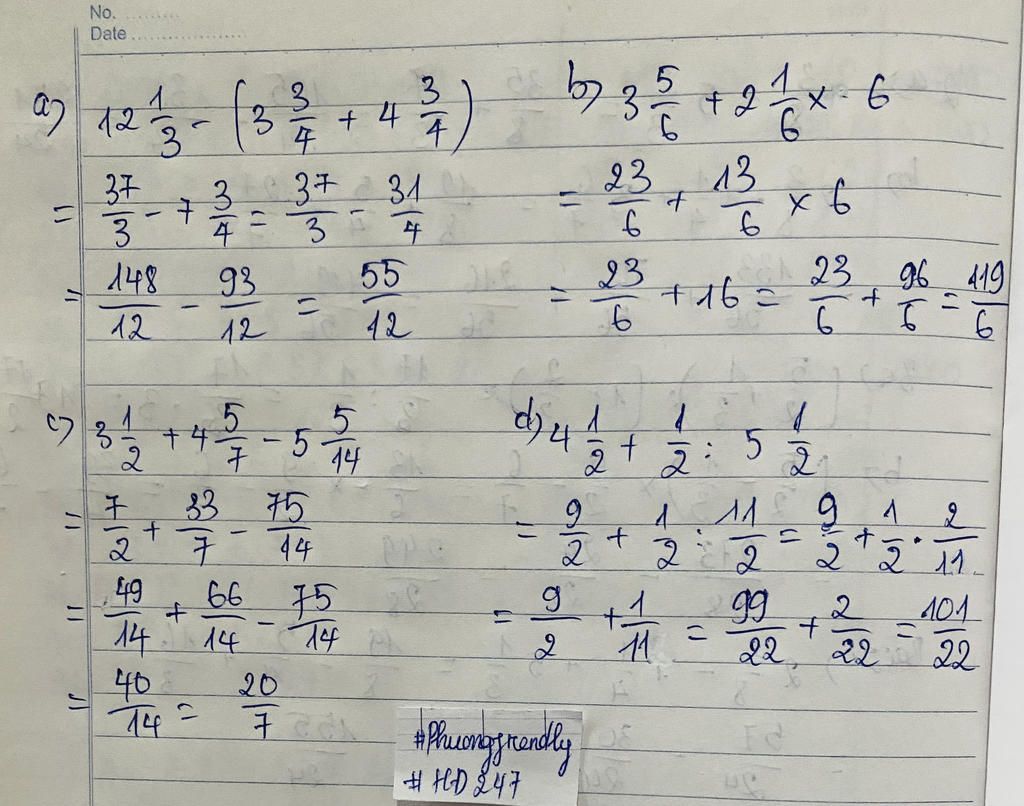 No. ..........
Date ....................
a) 12 1/3 - (3 3/4 + 4 3/4)
= 37/3 - 7 3/4 = 37/3 - 31/4
= 148/12 - 93/12 = 55/12
b) 3 5/6 + 2 1/6 x 6
= 23/6 + 13/6 x 6
= 23/6 + 16 = 23/6 + 96/6 = 119/6
c) 3 1/2 + 4 5/7 - 5 5/14
= 7/2 + 33/7 - 75/14
= 49/14 + 66/14 - 75/14
= 40/14 = 20/7
d) 4 1/2 + 1/2 : 5 1/2
= 9/2 + 1/2 : 11/2 = 9/2 + 1/2 . 2/11
= 9/2 + 1/11 = 99/22 + 2/22 = 101/22
#Phuongfrendly
# HD 247